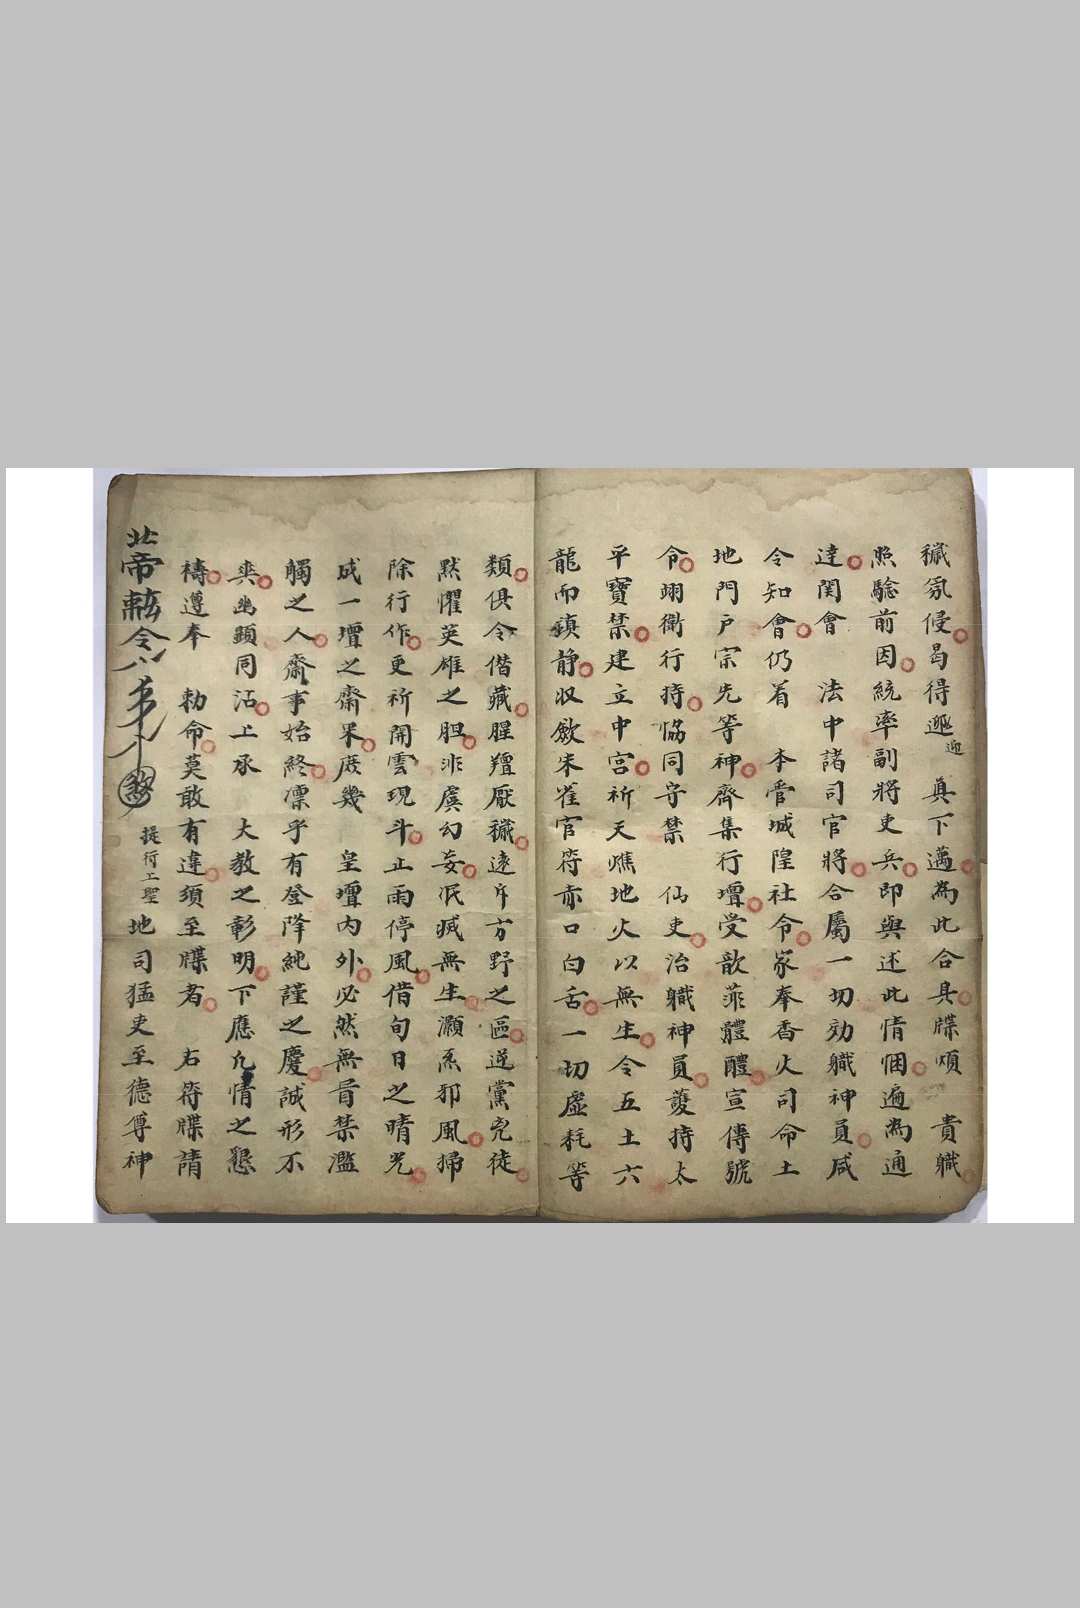 穢氛侵曷得迎 真下邁為此合具牒煩 貴職
照驗前因統率副將吏兵即與述此情悃遍為通
達関會 法中諸司官將合屬一切効職神員咸
令知會仍着 本管城隍社令家奉香火司命土
地門戶宗先等神齊集行壇受歆菲醴醴宣傳號
令翊衛行持恊同守禁 仙吏治職神員護持太
平寶禁建立中宮祈天醮地火以無生令五土六
龍而鎮静収歛朱雀官符赤口白舌一切虛耗等
類俱令偕藏腥羶厭穢逺斥方野之區逆黨兇徒
黙懼英雄之胆非虞幻妄泯滅無生灝炁邪風掃
除行作更祈開雲現斗止雨停風借旬日之晴光
成一壇之齋果庶幾 皇壇內外必然無冒禁濫
觸之人齋事始終凛乎有登降純謹之慶誠形不
爽幽顕同沾上承 大教之彰明下應凢情之懇
禱遵奉 勅命莫敢有違須至牒者 右符牒請
北帝勅令 提行上聖 地司猛吏至德尊神